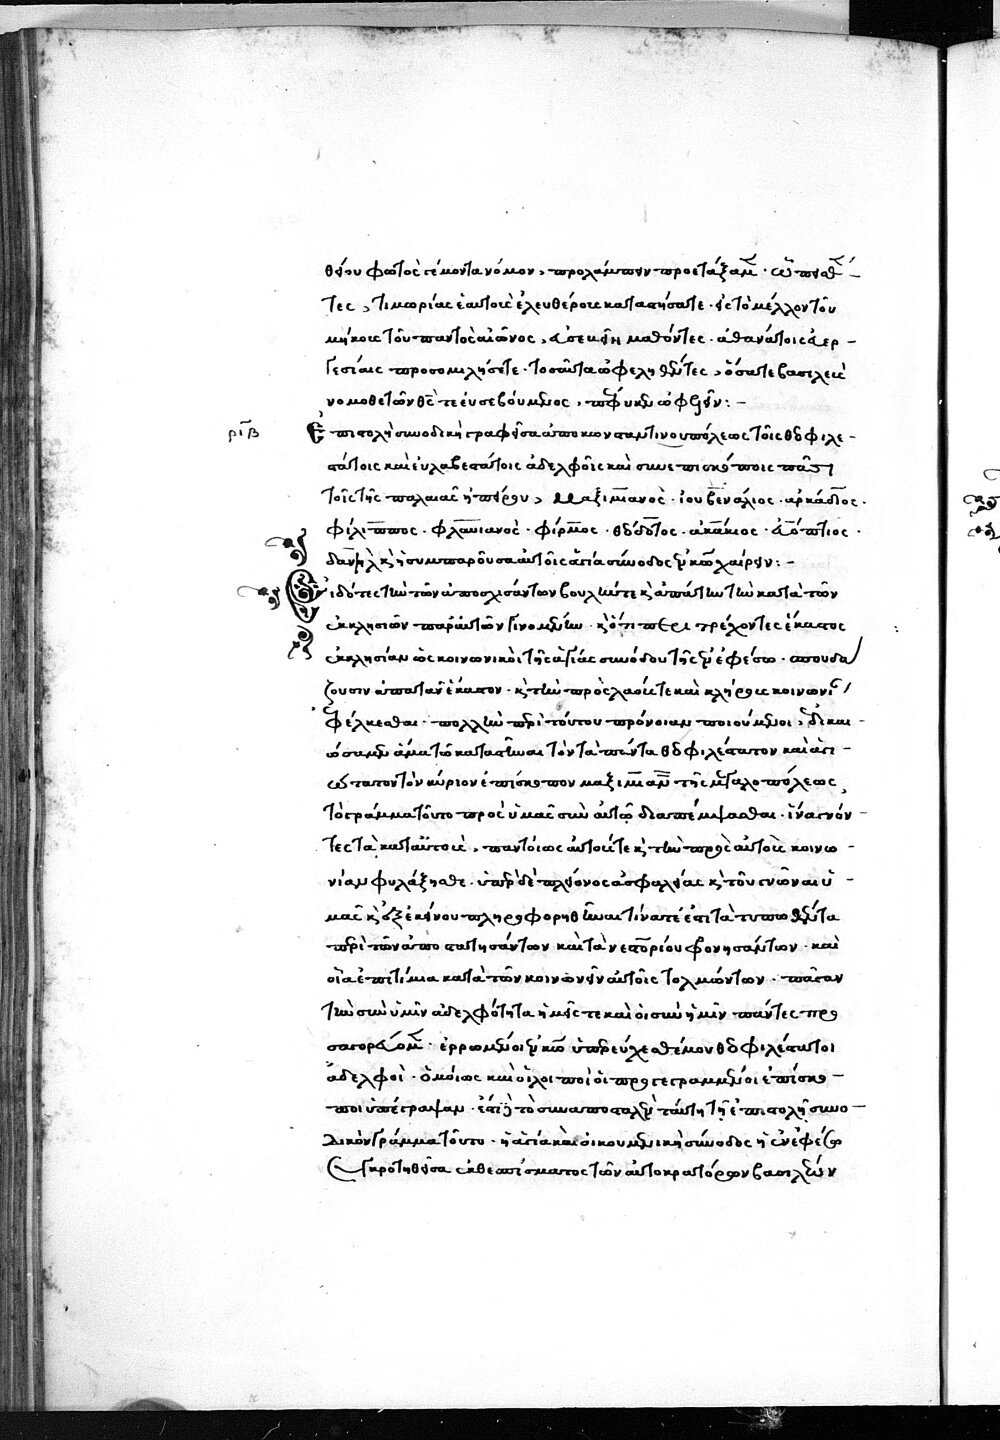 θείου φωτὸς γέμοντα νόμον, προλάμπειν προετάξαμεν. ὧ πεισθέν-
τες, τιμωρίας ἑαυτοὺς ἐλευθέρους καταστήσατε. εἰς τὸ μέλλον τοῦ
μήκους τοῦ παντὸς αἰῶνος, εὐσεβεῖν μαθόντες. ἀθανάτοις εὐερ-
γεσίαις προσομιλήσετε. τοσαῦτα ὠφεληθέντες, ὅσα τε βασιλεῖς
νομοθετῶν θεός τε εὐσεβούμενος, πέφυκεν ὠφελεῖν:-
ριβ Ἐπιστολὴ συνοδικὴ γραφεῖσα ἀπὸ κωνσταντινουπόλεως τοῖς θεοφιλε-
στάτοις καὶ εὐλαβεστάτοις ἀδελφοῖς καὶ συνεπισκόποις πᾶσι
τοῖς τῆς παλαιᾶς ἠπείρου, Μαξιμιανὸς. ἰουβενάλιος. ἀρκάδιος.
φίλιππος. φλαυιανὸς. φίρμος. θεόδοτος. ἀκάκιος. εὐόπτιος.
δανιὴλ κ ἡ συμπαροῦσα αὐτοῖς ἁγία σύνοδος ἐν κω χαίρειν:-
Εἰδότες τὴν τῶν ἀποσχισάντων βουλήν τε κ ἀπάτην τὴν κατὰ τῶν
ἐκκλησιῶν παρ' αὐτῶν γινομένην. κ ὅτι περιτρέχοντες ἑκάστος
ἐκκλησίαν ὡς κοινωνικοὶ τῆς ἁγίας συνόδου τῆς ἐν ἐφέσω. σπουδά
ζουσιν ἀπατᾶν ἕκαστον. κ τὴν πρὸς λαούς τε καὶ κλήρους κοινωνί
ἐφέλκεσθαι. πολλὴν περὶ τούτου πρόνοιαν ποιούμενοι, δικαι-
ώσαμεν ἅμα τῶ καταστῆναι τὸν τὰ πάντα θεοφιλέστατον καὶ ἁγι-
ώτατον τὸν κύριον ἐπίσκοπον μαξιμιανὸν τῆς μεγαλοπόλεως,
τὸ γράμμα τοῦτο πρὸς ὑμᾶς σὺν αὐτῶ διαπέμψασθαι. ἵνα γνόν-
τες τὰ κατ' αὐτοὺς, παντοίως αὐτούς τε κ τὴν πρὸς αὐτοὺς κοινω-
νίαν φυλάξησθε. ὑπὲρ δὲ πλείονος ἀσφαλείας κ τοῦ γνῶναι ὑ-
μᾶς κ ἐξ ἐκείνου πληροφορηθῆναι τίνα τέ ἐστι τὰ τυπωθέντα
περὶ τῶν ἀποστατησάντων καὶ τὰ νεστορίου φρονησάντων. καὶ
οἷα ἐπιτίμια κατὰ τῶν κοινωνεῖν αὐτοῖς τολμώντων. πᾶσαν
τὴν σὺν ὑμῖν ἀδελφότητα ἡμεῖς τε καὶ οἱ σὺν ἡμῖν πάντες προ
σαγορεύομεν. ἐρρωμένοι ἐν κω ὑπερεύχεσθε ἡμῶν θεοφιλέστατοι
ἀδελφοί. ὁμοίως καὶ οἱ λοιποὶ οἱ προγεγραμμένοι ἐπίσκο-
ποι ὑπέγραψαν. ἔστι δὲ τὸ συναποσταλὲν ταύτη τῆ ἐπιστολῆ συνο-
δικὸν γράμμα τοῦτο. ἡ ἁγία καὶ οἰκουμενικὴ σύνοδος ἡ ἐν ἐφέσω
συγκροτηθεῖσα ἐκ θεσπίσματος τῶν αὐτοκρατόρων βασιλέων